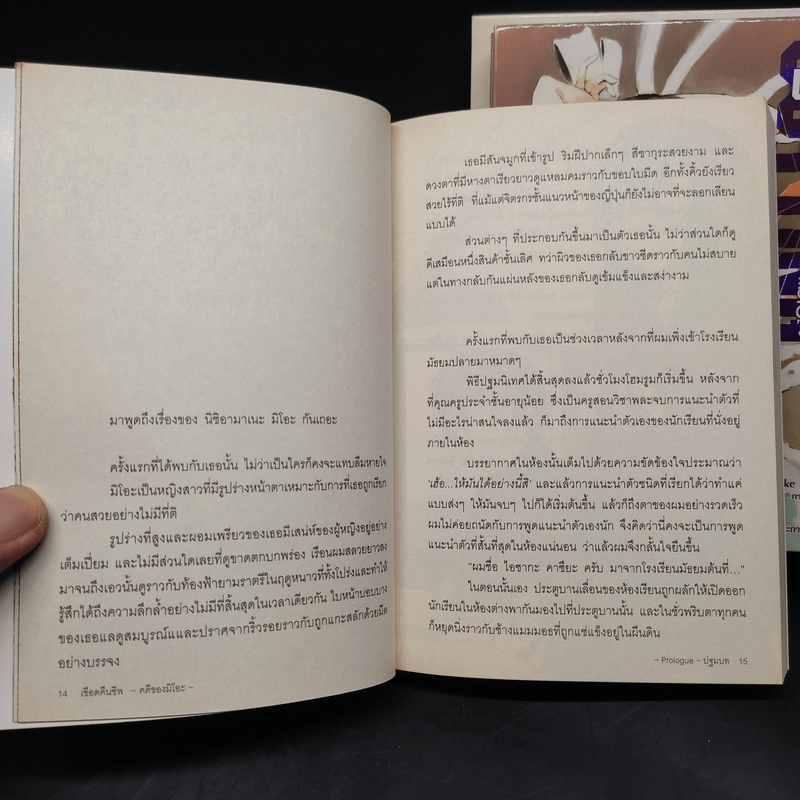 มาพูดถึงเรื่องของ นิชิอามาเนะ มิโอะ กันเถอะ
ครั้งแรกที่ได้พบกับเธอนั้น ไม่ว่าเป็นใครก็คงจะแทบลืมหายใจ
มิโอะเป็นหญิงสาวที่มีรูปร่างหน้าตาเหมาะกับการที่เธอถูกเรียก
ว่าคนสวยอย่างไม่มีที่ติ
รูปร่างที่สูงและผอมเพรียวของเธอมีเสน่ห์ของผู้หญิงอยู่อย่าง
เต็มเปี่ยม และไม่มีส่วนใดเลยที่ดูขาดตกบกพร่อง เรือนผมสลวยยาวลง
มาจนถึงเอวนั้นดูราวกับท้องฟ้ายามราตรีในฤดูหนาวที่ทั้งโปร่งและทำให้
รู้สึกได้ถึงความลึกล้ำอย่างไม่มีที่สิ้นสุดในเวลาเดียวกัน ใบหน้าบอบบาง
ของเธอแลดูสมบูรณ์แและปราศจากริ้วรอยราวกับถูกแกะสลักด้วยมีด
อย่างบรรจง
14 เชือดคืนชีพ ~ คดีของมิโอะ ~
เธอมีสันจมูกที่เข้ารูป ริมฝีปากเล็กๆ สีซากุระสวยงาม และ
ดวงตาที่มีหางตาเรียวยาวดูแหลมคมราวกับขอบใบมีด อีกทั้งคิ้วยังเรียว
สวยไร้ที่ติ ที่แม้แต่จิตรกรชั้นแนวหน้าของญี่ปุ่นก็ยังไม่อาจที่จะลอกเลียน
แบบได้
ส่วนต่างๆ ที่ประกอบกันขึ้นมาเป็นตัวเธอนั้น ไม่ว่าส่วนใดก็ดู
ดีเสมือนหนึ่งสินค้าชั้นเลิศ ทว่าผิวของเธอกลับขาวซีดราวกับคนไม่สบาย
แต่ในทางกลับกันแผ่นหลังของเธอกลับดูเข้มแข็งและสง่างาม
ครั้งแรกที่พบกับเธอเป็นช่วงเวลาหลังจากที่ผมเพิ่งเข้าโรงเรียน
มัธยมปลายมาหมาดๆ
พิธีปฐมนิเทศได้สิ้นสุดลงแล้วชั่วโมงโฮมรูมก็เริ่มขึ้น หลังจาก
ที่คุณครูประจำชั้นอายุน้อย ซึ่งเป็นครูสอนวิชาพละจบการแนะนำตัวที่
ไม่มีอะไรน่าสนใจลงแล้ว ก็มาถึงการแนะนำตัวเองของนักเรียนที่นั่งอยู่
ภายในห้อง
บรรยากาศในห้องนั้นเต็มไปด้วยความขัดข้องใจประมาณว่า
'เฮ้อ...ให้มันได้อย่างนี้สิ' และแล้วการแนะนำตัวชนิดที่เรียกได้ว่าทำแค่
แบบส่งๆ ให้มันจบๆ ไปก็ได้เริ่มต้นขึ้น แล้วก็ถึงตาของผมอย่างรวดเร็ว
ผมไม่ค่อยถนัดกับการพูดแนะนำตัวเองนัก จึงคิดว่านี่คงจะเป็นการพูด
แนะนำตัวที่สั้นที่สุดในห้องแน่นอน ว่าแล้วผมจึงกลั้นใจยืนขึ้น
"ผมชื่อ ไอซากะ คาซึยะ ครับ มาจากโรงเรียนมัธยมต้นที่..."
ในตอนนั้นเอง ประตูบานเลื่อนของห้องเรียนถูกผลักให้เปิดออก
นักเรียนในห้องต่างพากันมองไปที่ประตูบานนั้น และในชั่วพริบตาทุกคน
ก็หยุดนิ่งราวกับช้างแมมมอธที่ถูกแช่แข็งอยู่ในผืนดิน
~ Prologue ~ ปฐมบท 15